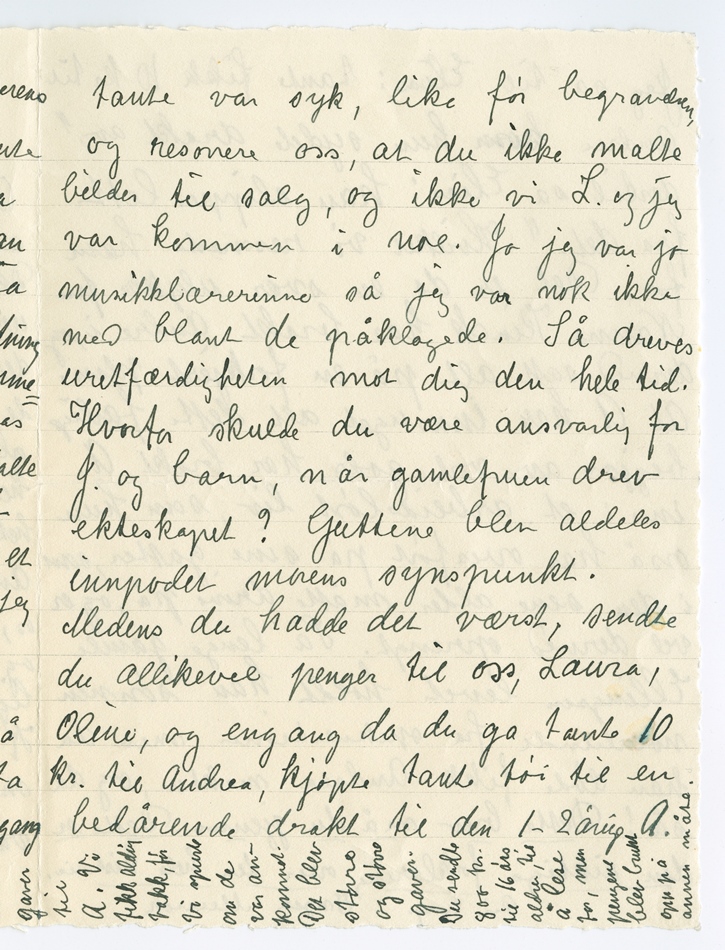 tante var syk, like før begravelsen,
og resonere oss, at du ikke malte
bilder til salg, og ikke vi L. og jeg
var kommen i noe. Jo jeg var jo
musikklærerinne så jeg var nok ikke
med blant de påklagede. Så dreves
uretfærdigheten mot dig den hele tid.
Hvorfor skulde du være ansvarlig for
J. og barn, når gamlefruen drev
ekteskapet? Guttene blev aldeles
innpodet morens synspunkt.
Medens du hadde det værst, sendte
du allikevel penger til oss, Laura,
Oline, og engang da du ga tante 10
kr. til Andrea, kjøpte tante tøi til en
bedårende drakt til den 1-2årig A.
gaver
til
A. Vi
fikk aldrig
takk, før
vi spurte
om de
var an-
kommet
Det blev
større
og større
gaver.
Du sendte
800 kr.
til 16 års
alder, til
å lese
for, men
pengene
blev brukt
opp på
annen måte.